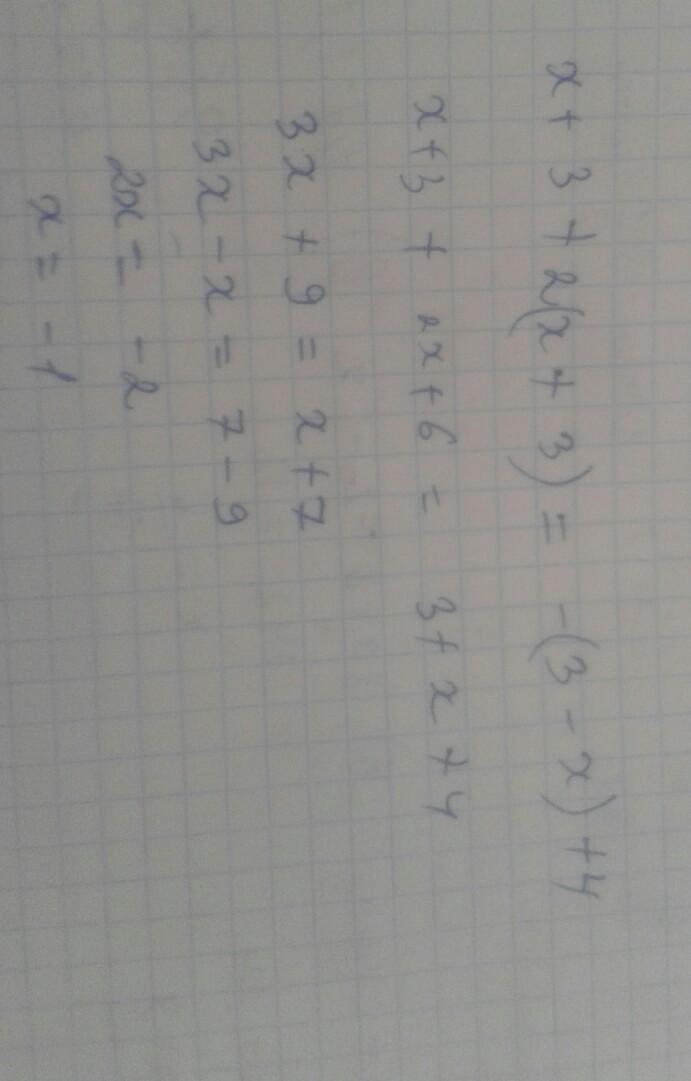 x + 3 + 2(x + 3) = -(3 - x) + 4
x + 3 + 2x + 6 = 3 + x + 4
3x + 9 = x + 7
3x - x = 7 - 9
2x = -2
x = -1